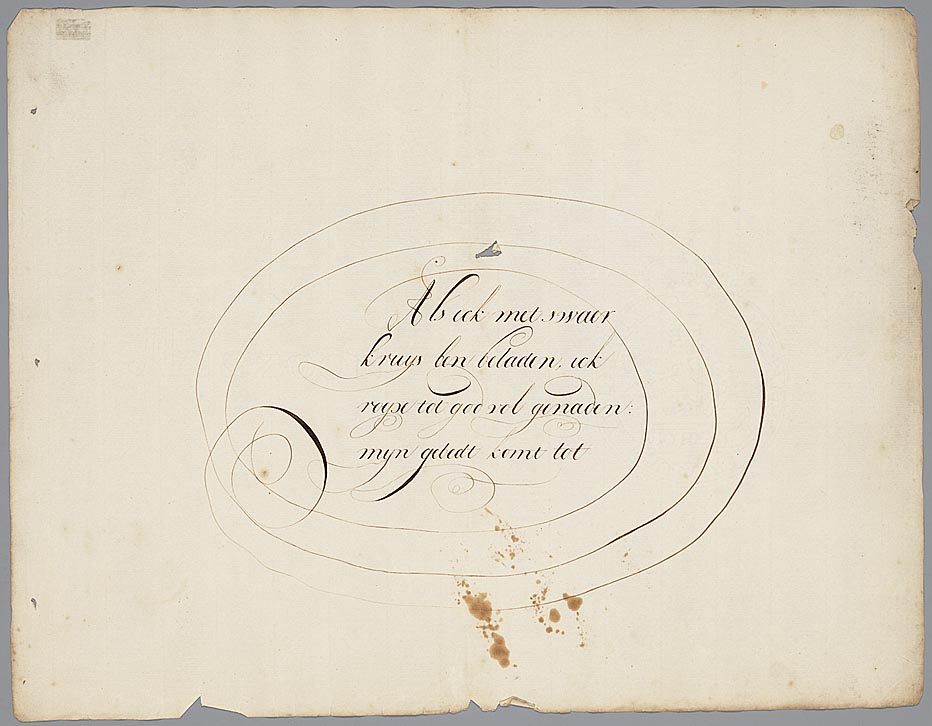 Als ick met swaer
kruys ben beladen, ick
roepe tot god vol genaden:
mijn gebedt komt tot